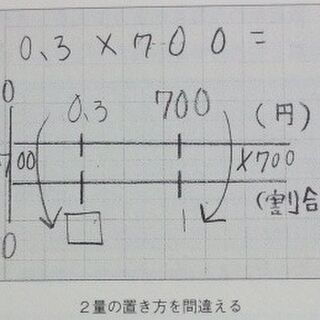 0.3×700=
0 0.3 700 (円)
×700 ×700
0 □ 1 (割合
2量の置き方を間違える